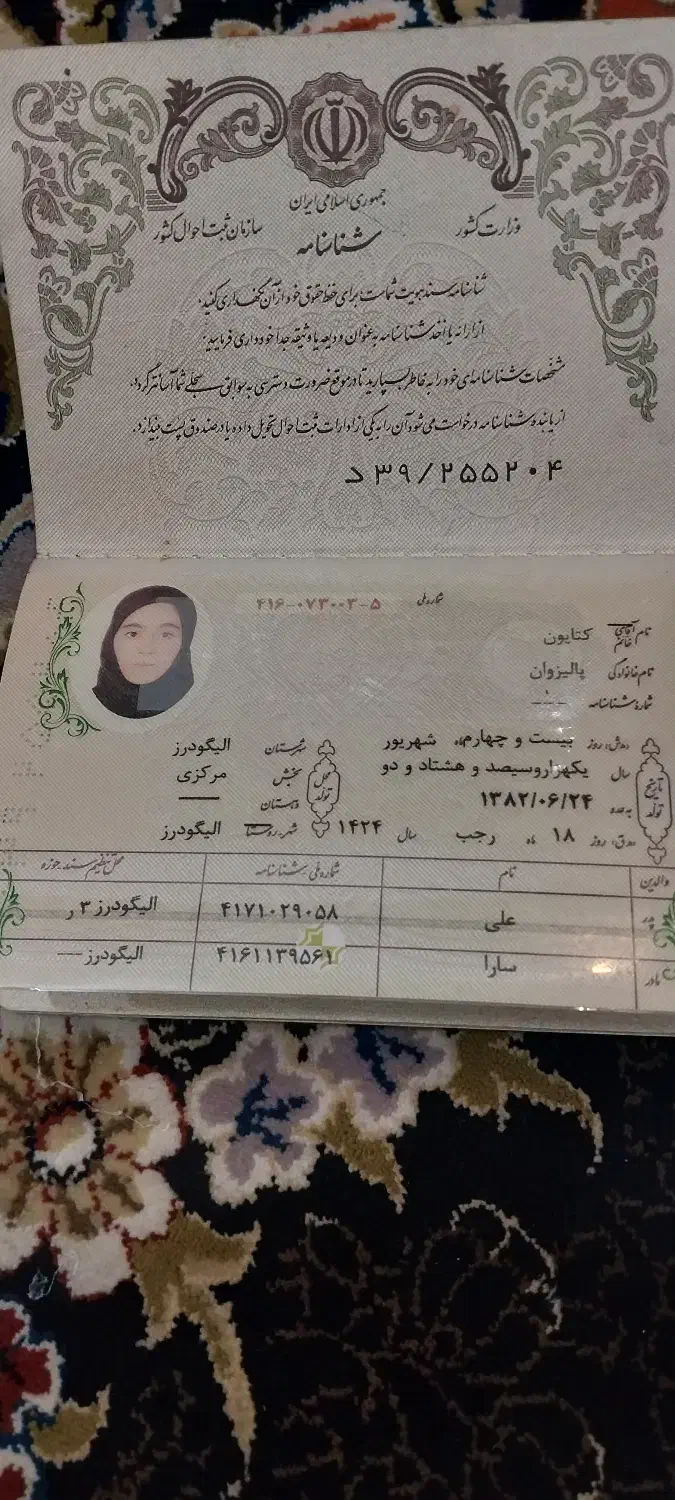 جمهوری اسلامی ایران
وزارت کشور
سازمان ثبت احوال کشور
شناسنامه
شناسنامه سند هویت شماست؛ برای حفظ حقوق خود از آن نگهداری کنید.
از ارائه یا اخذ شناسنامه به عنوان ودیعه یا وثیقه جداً خودداری فرمایید.
مشخصات شناسنامه‌ای خود را به خاطر بسپارید تا در موقع ضرورت دسترسی به سوابق سجلی شما آسانتر گردد.
از یابنده شناسنامه درخواست می شود آن را به یکی از ادارات ثبت احوال تحویل داده یا در صندوق پست بیندازد.
د ۳۹/۲۵۵۲۰۴
شماره ملی ۴۱۶-۰۷۳۰۰۳-۵
نام آقای خانم کتایون
نام خانوادگی پالیزوان
شماره شناسنامه ---
تاریخ تولد
ه‍.ش: روز بیست و چهارم ماه شهریور
سال یکهزاروسیصد و هشتاد و دو
به عدد ۱۳۸۲/۰۶/۲۴
ه‍.ق: روز ۱۸ ماه رجب سال ۱۴۲۴
محل تولد
شهرستان الیگودرز
بخش مرکزی
دهستان ——
شهر، روستا الیگودرز
والدین نام شماره ملی، شناسنامه محل تنظیم سند، حوزه
پدر علی ۴۱۷۱۰۲۹۰۵۸ الیگودرز ۳ ر
مادر سارا ۴۱۶۱۱۳۹۵۶۱ الیگودرز ---